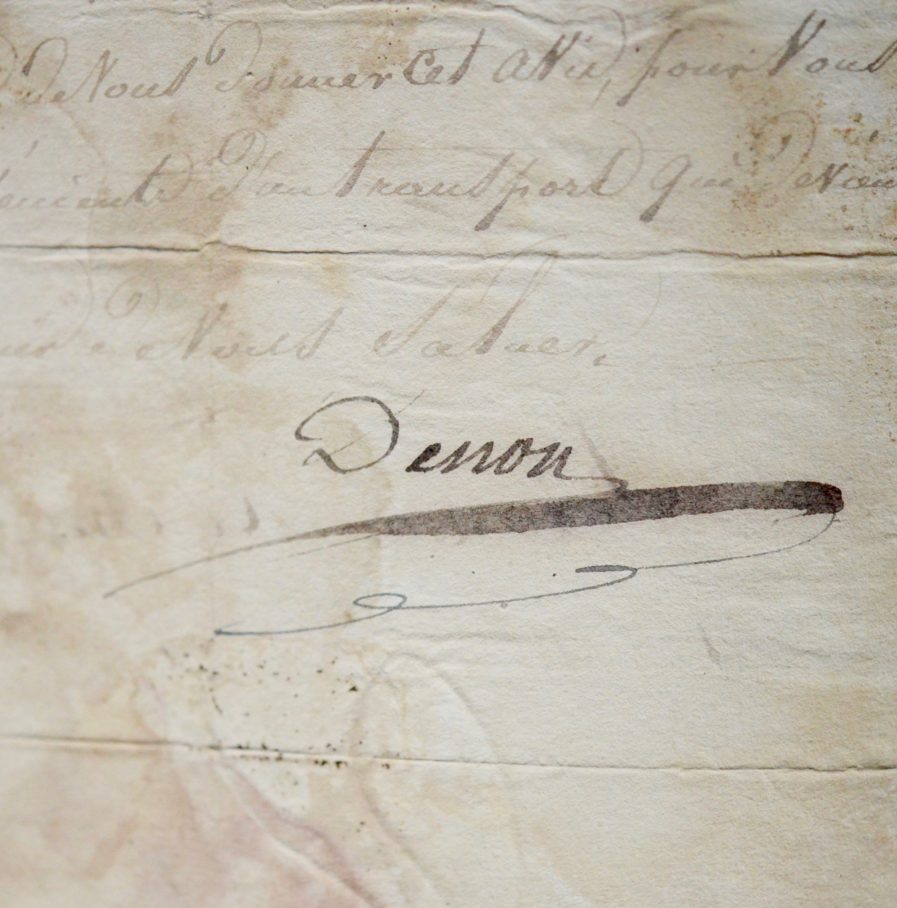 de Vous donner cet avis, pour Vous
d'un transport qui
de Vous Saluer.
Denon